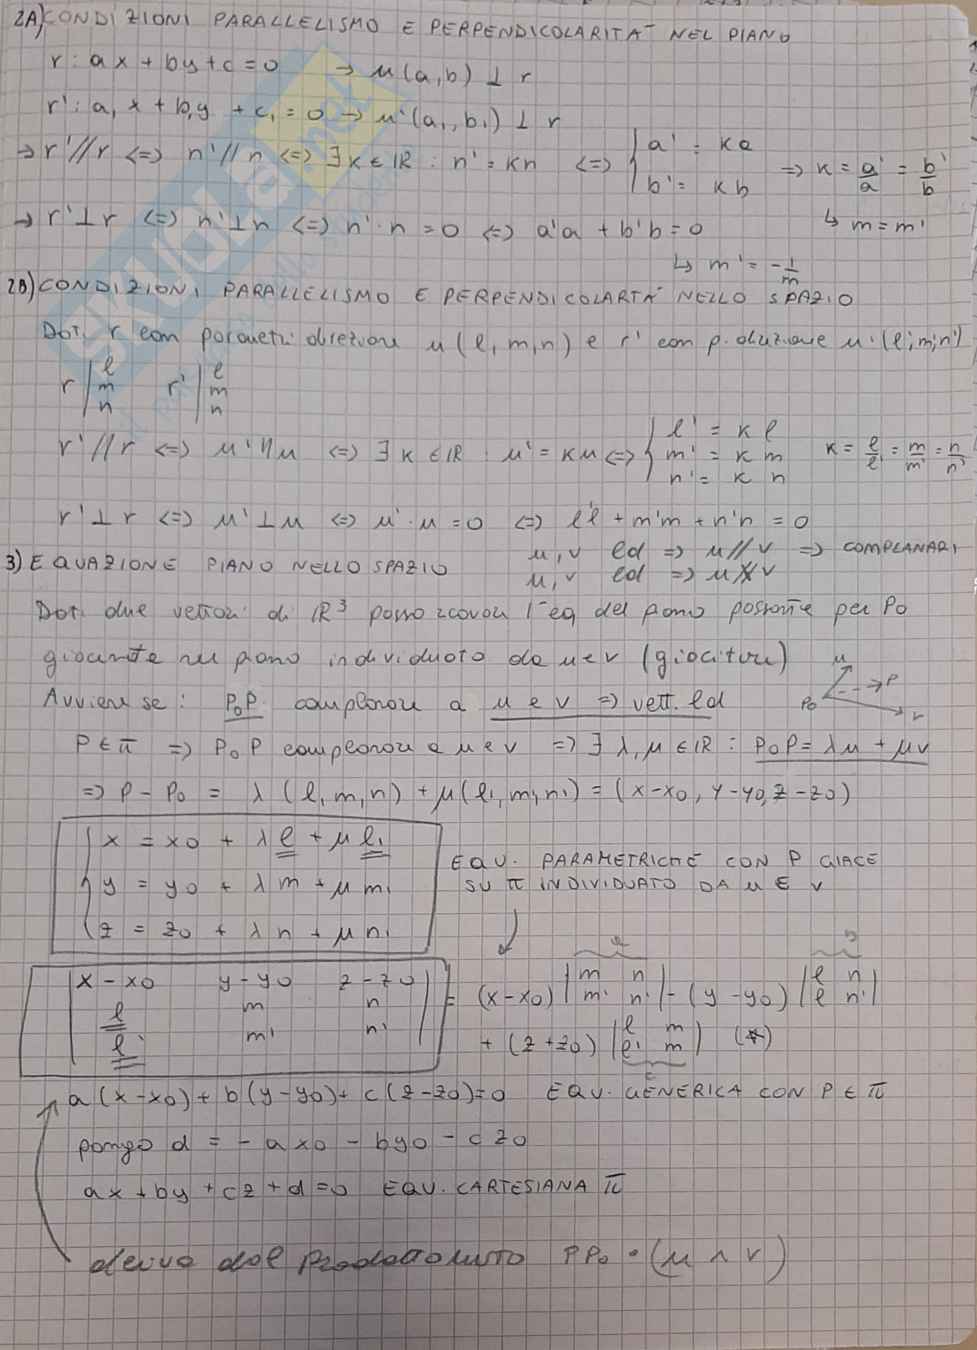 2A) CONDIZIONI PARALLELISMO E PERPENDICOLARITA' NEL PIANO
r: ax + by + c = 0 → μ(a,b) ⊥ r
r': a₁x + b₁y + c₁ = 0 → μ'(a₁,b₁) ⊥ r
→ r'//r <=> n'//n <=> ∃ K ∈ IR : n' = Kn <=> { a' = Ka b' = Kb => K = a'/a = b'/b
↳ m = m'
→ r'⊥r <=> n'⊥n <=> n'·n = 0 <=> a'a + b'b = 0
↳ m' = -1/m
2B) CONDIZIONI PARALLELISMO E PERPENDICOLARTA' NELLO SPAZIO
Dati r con parametri direzioni μ(l,m,n) e r' con p. direzione μ'(l',m',n')
r | l m n r' | l m n
r'//r <=> μ'//μ <=> ∃ K ∈ IR : μ' = Kμ <=> { l' = K l m' = K m n' = K n K = l/l' = m/m' = n/n'
r'⊥r <=> μ'⊥μ <=> μ'·μ = 0 <=> l'l + m'm + n'n = 0
μ, v ld => μ//v => COMPLANARI
3) EQUAZIONE PIANO NELLO SPAZIO
μ, v ld => μ∦v
Dati due vettori di IR³ posso ricavare l'eq del piano passante per P0
giacente su piano individuato da μ e v (giaciture)
Avviene se: P0P complanare a μ e v => vett. ld
μ P P0 v
P ∈ π => P0P complanare a μ e v => ∃ λ,μ ∈ IR : P0P = λμ + μv
=> P - P0 = λ(l,m,n) + μ(l₁,m₁,n₁) = (x-x0, y-y0, z-z0)
{ x = x0 + λ l + μ l₁
y = y0 + λ m + μ m₁
z = z0 + λ n + μ n₁
EQU. PARAMETRICHE CON P GIACE
SU π INDIVIDUATO DA μ E v
| x-x0 y-y0 z-z0 |
| l m n |
| l' m' n' |
= (x-x0) | m n m' n' | - (y-y0) | l n l n' |
a b
+ (z+z0) | l m l' m | (*)
c
a(x-x0) + b(y-y0) + c(z-z0) = 0 EQU. GENERICA CON P ∈ π
pongo d = - ax0 - by0 - cz0
ax + by + cz + d = 0 EQU. CARTESIANA π
deriva dal Prodotto misto PP0 · (μ ∧ v)
SKUOLA.net